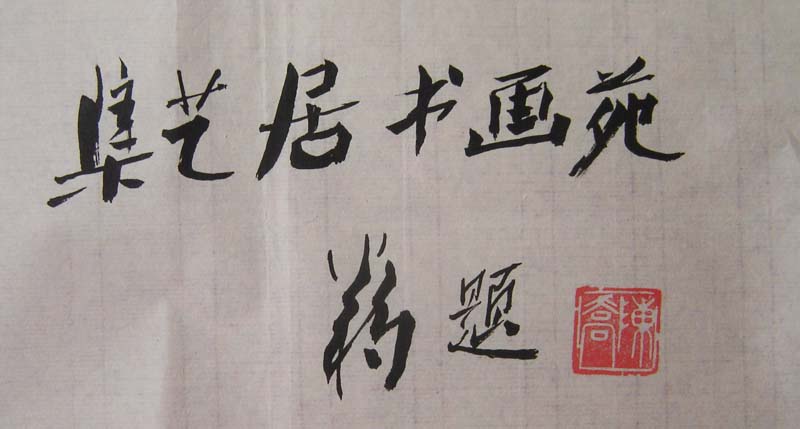 集艺居书画苑
题